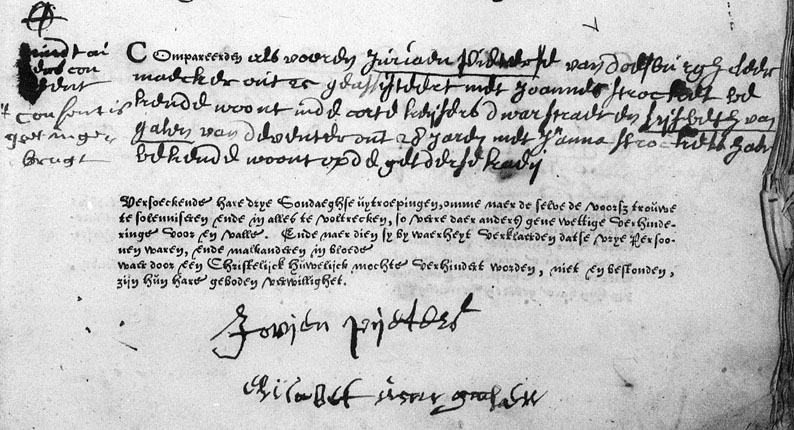 mindt ou
ders con
sent
't Consent is
geit inge
bragt
Compareerden als voeren Juriaen Pieterse van doesburgh cleer
maecker out 25 geassisteert met Joannes strockett be
kende woont inde corte keijsers dwarstraet en Lijsbeth van
galen van deventer out 28 Jaren met Janna strocketts haer
bekende woont op de gelderse kaeij
Versoeckende hare drye Sondaeghse uytroepingen, omme naer de selve de voorsz trouwe
te solemniseren ende in alles te voltrecken, so verre daer anders gene wettige verhinde-
ringe voor en valle. Ende naer dien sy by waerheyt verklaerden datse vrye Persoo-
nen waren, ende malkanderen in bloede
waer door een Christelijck Huwelijck mochte verhindert worden, niet en bestonden,
zijn hun hare geboden verwillighet.
Jovjen pijeters
Elisabet van galen